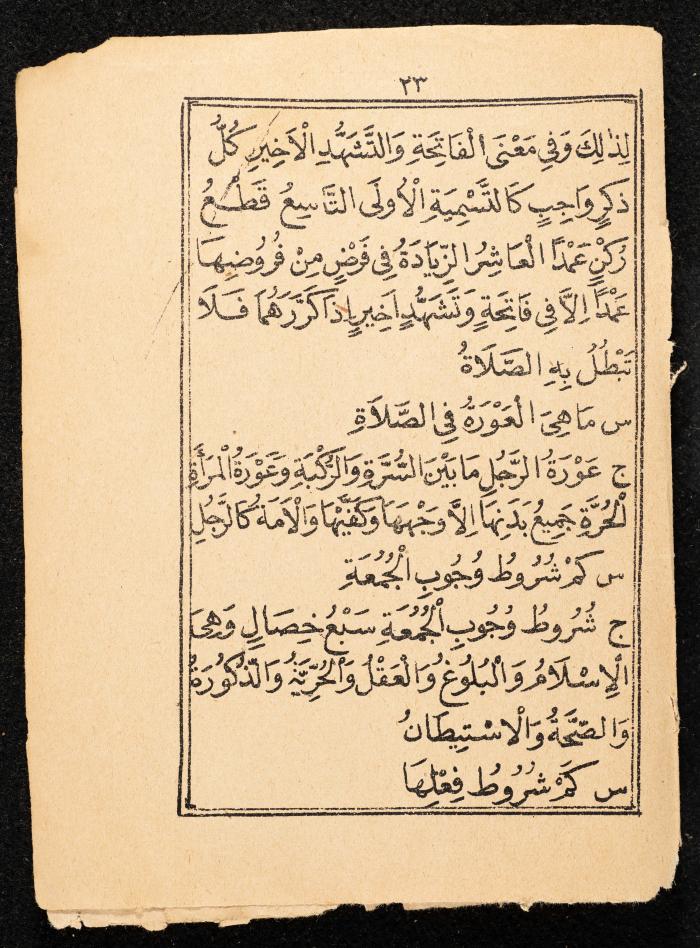 ٢٣
لِذٰلِكَ وَفِي مَعْنَى الْفَاتِحَةِ وَالتَّشَهُّدِ الْاَخِيرِ كُلُّ
ذِكْرٍ وَاجِبٍ كَالتَّسْمِيَةِ الْاُولَى التَّاسِعُ قَطْعُ
رُكْنٍ عَمْدًا الْعَاشِرُ الزِّيَادَةُ فِي فَرْضٍ مِنْ فُرُوضِهَا
عَمْدًا اِلَّا فِي فَاتِحَةٍ وَتَشَهُّدٍ اَخِيرٍ اِذَا كَرَّرَهُمَا فَلَا
تَبْطُلُ بِهِ الصَّلَاةُ
س مَا هِيَ الْعَوْرَةُ فِي الصَّلَاةِ
ج عَوْرَةُ الرَّجُلِ مَا بَيْنَ السُّرَّةِ وَالرُّكْبَةِ وَعَوْرَةُ الْمَرْأَةِ
الْحُرَّةِ جَمِيعُ بَدَنِهَا اِلَّا وَجْهَهَا وَكَفَّيْهَا وَالْاَمَةُ كَالرَّجُلِ
س كَمْ شُرُوطُ وُجُوبِ الْجُمُعَةِ
ج شُرُوطُ وُجُوبِ الْجُمُعَةِ سَبْعُ خِصَالٍ وَهِيَ
الْاِسْلَامُ وَالْبُلُوغُ وَالْعَقْلُ وَالْحُرِّيَّةُ وَالذُّكُورَةُ
وَالصِّحَّةُ وَالْاِسْتِيطَانُ
س كَمْ شُرُوطُ فِعْلِهَا